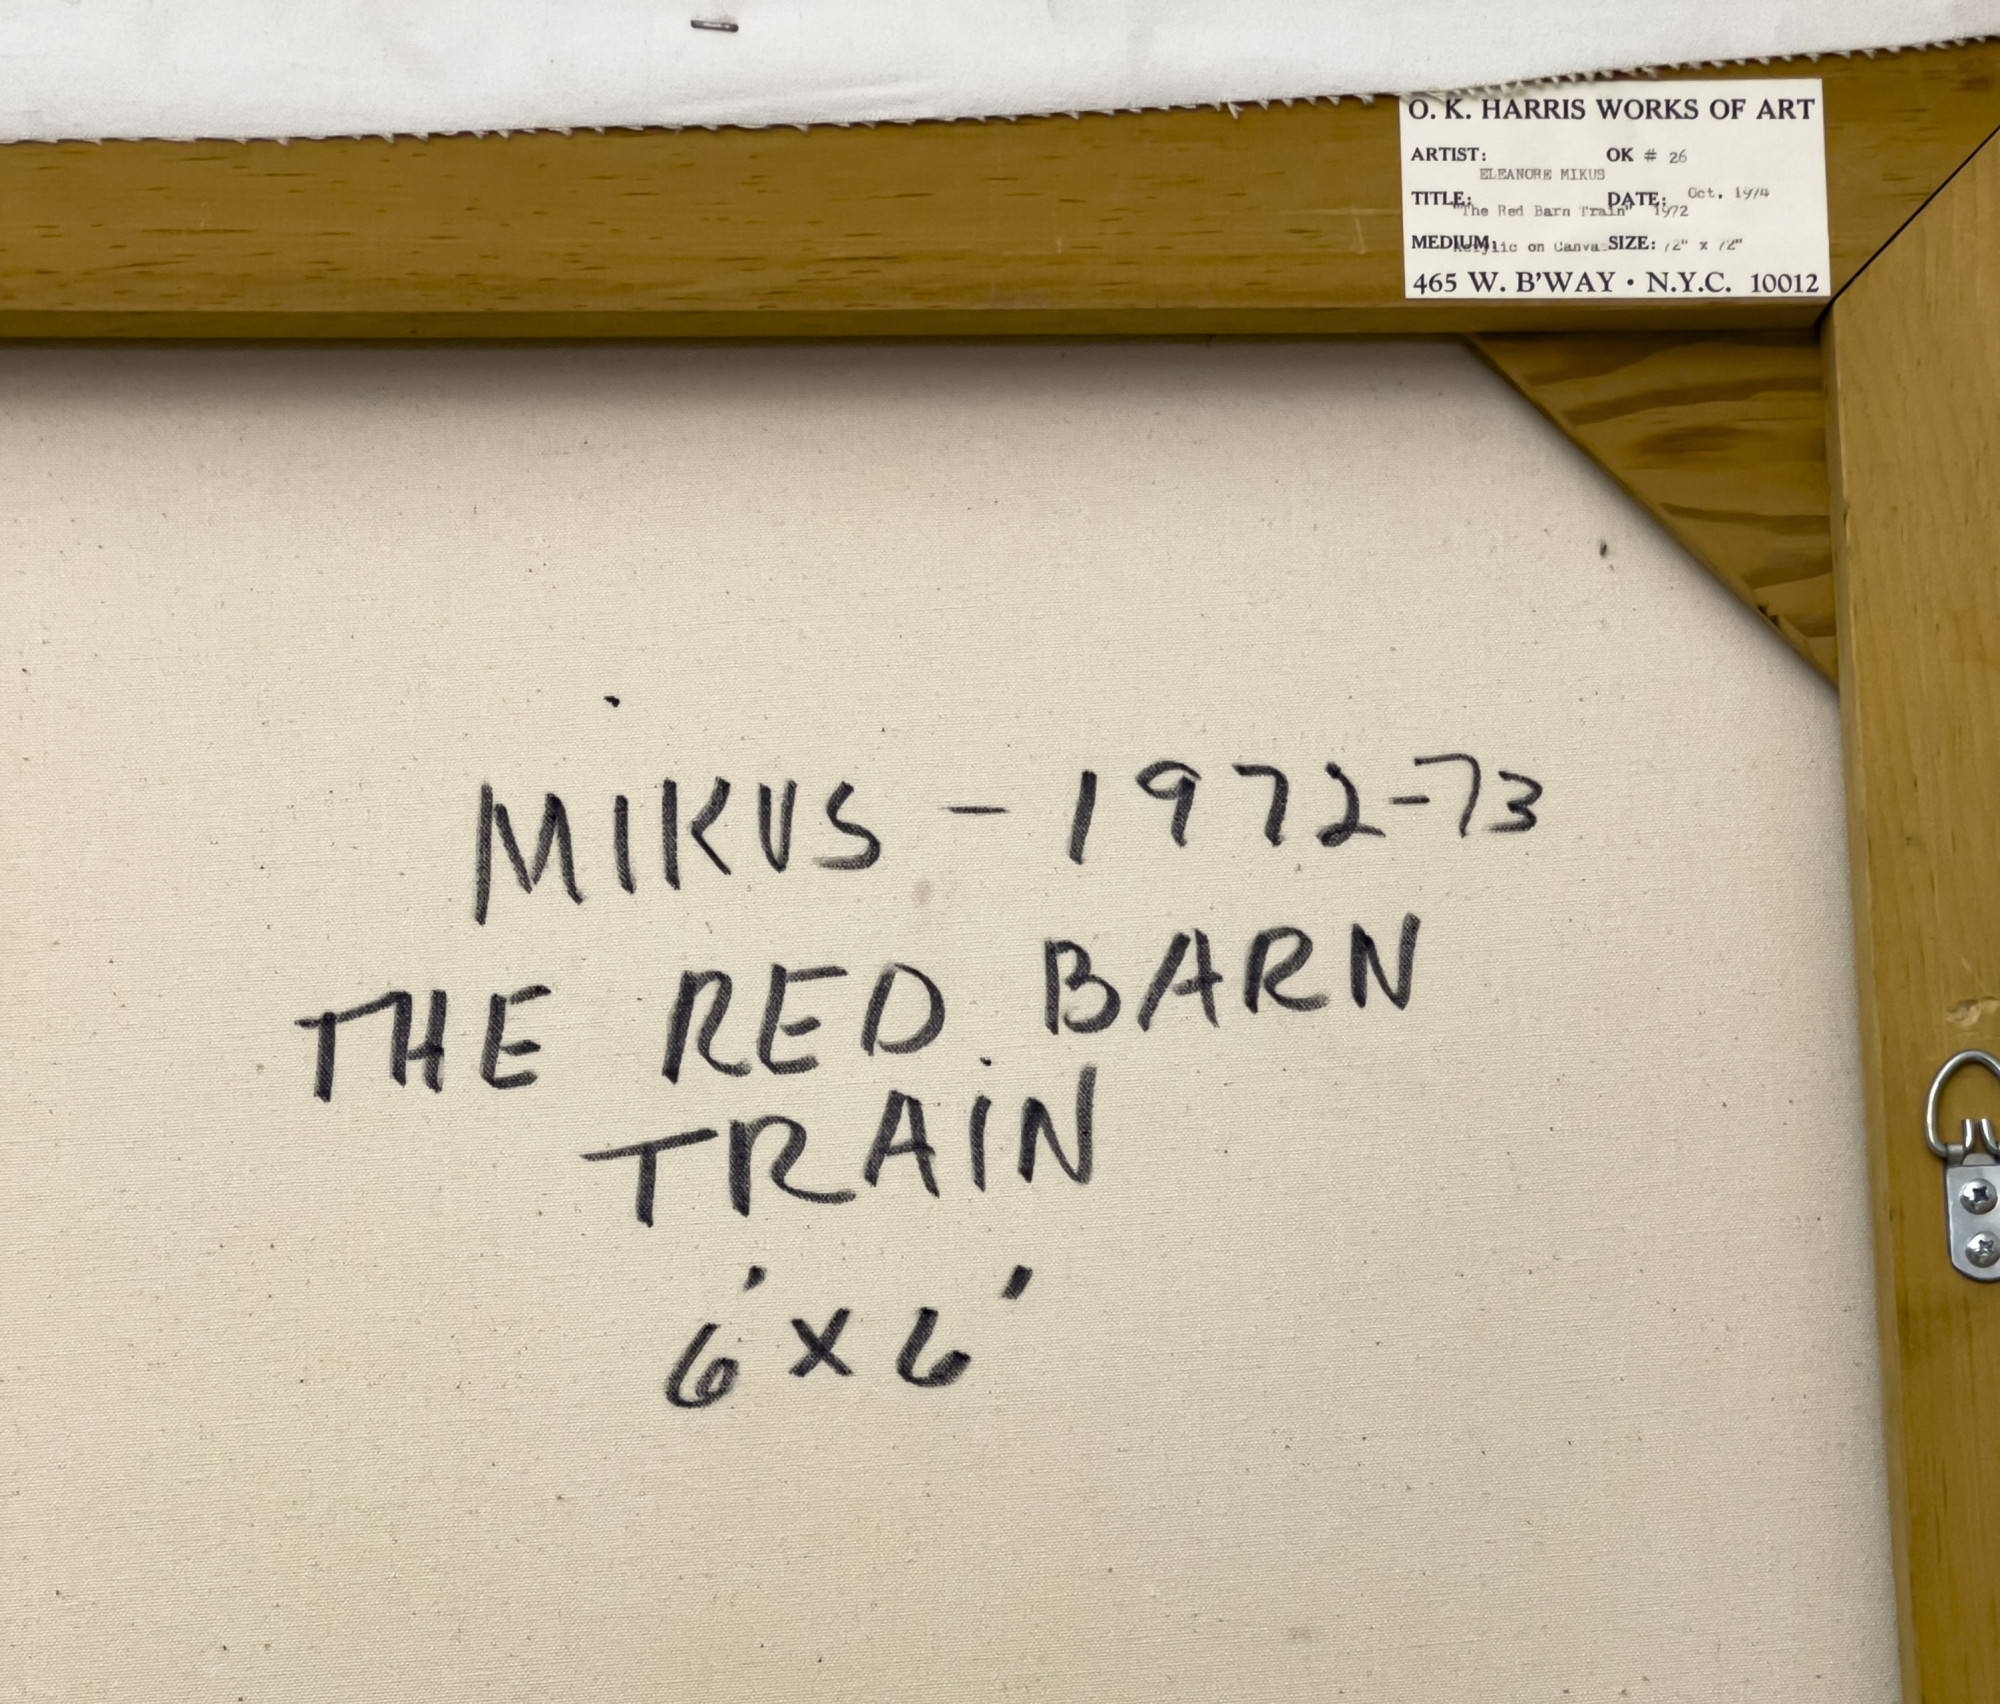 O. K. HARRIS WORKS OF ART
ARTIST: OK # 26
ELEANORE MIKUS
TITLE: DATE: Oct. 1974
"The Red Barn Train" 1972
MEDIUM: Acrylic on Canvas SIZE: 72" x 72"
465 W. B'WAY • N.Y.C. 10012
MIKUS – 1972-73
THE RED BARN
TRAIN
6' x 6'